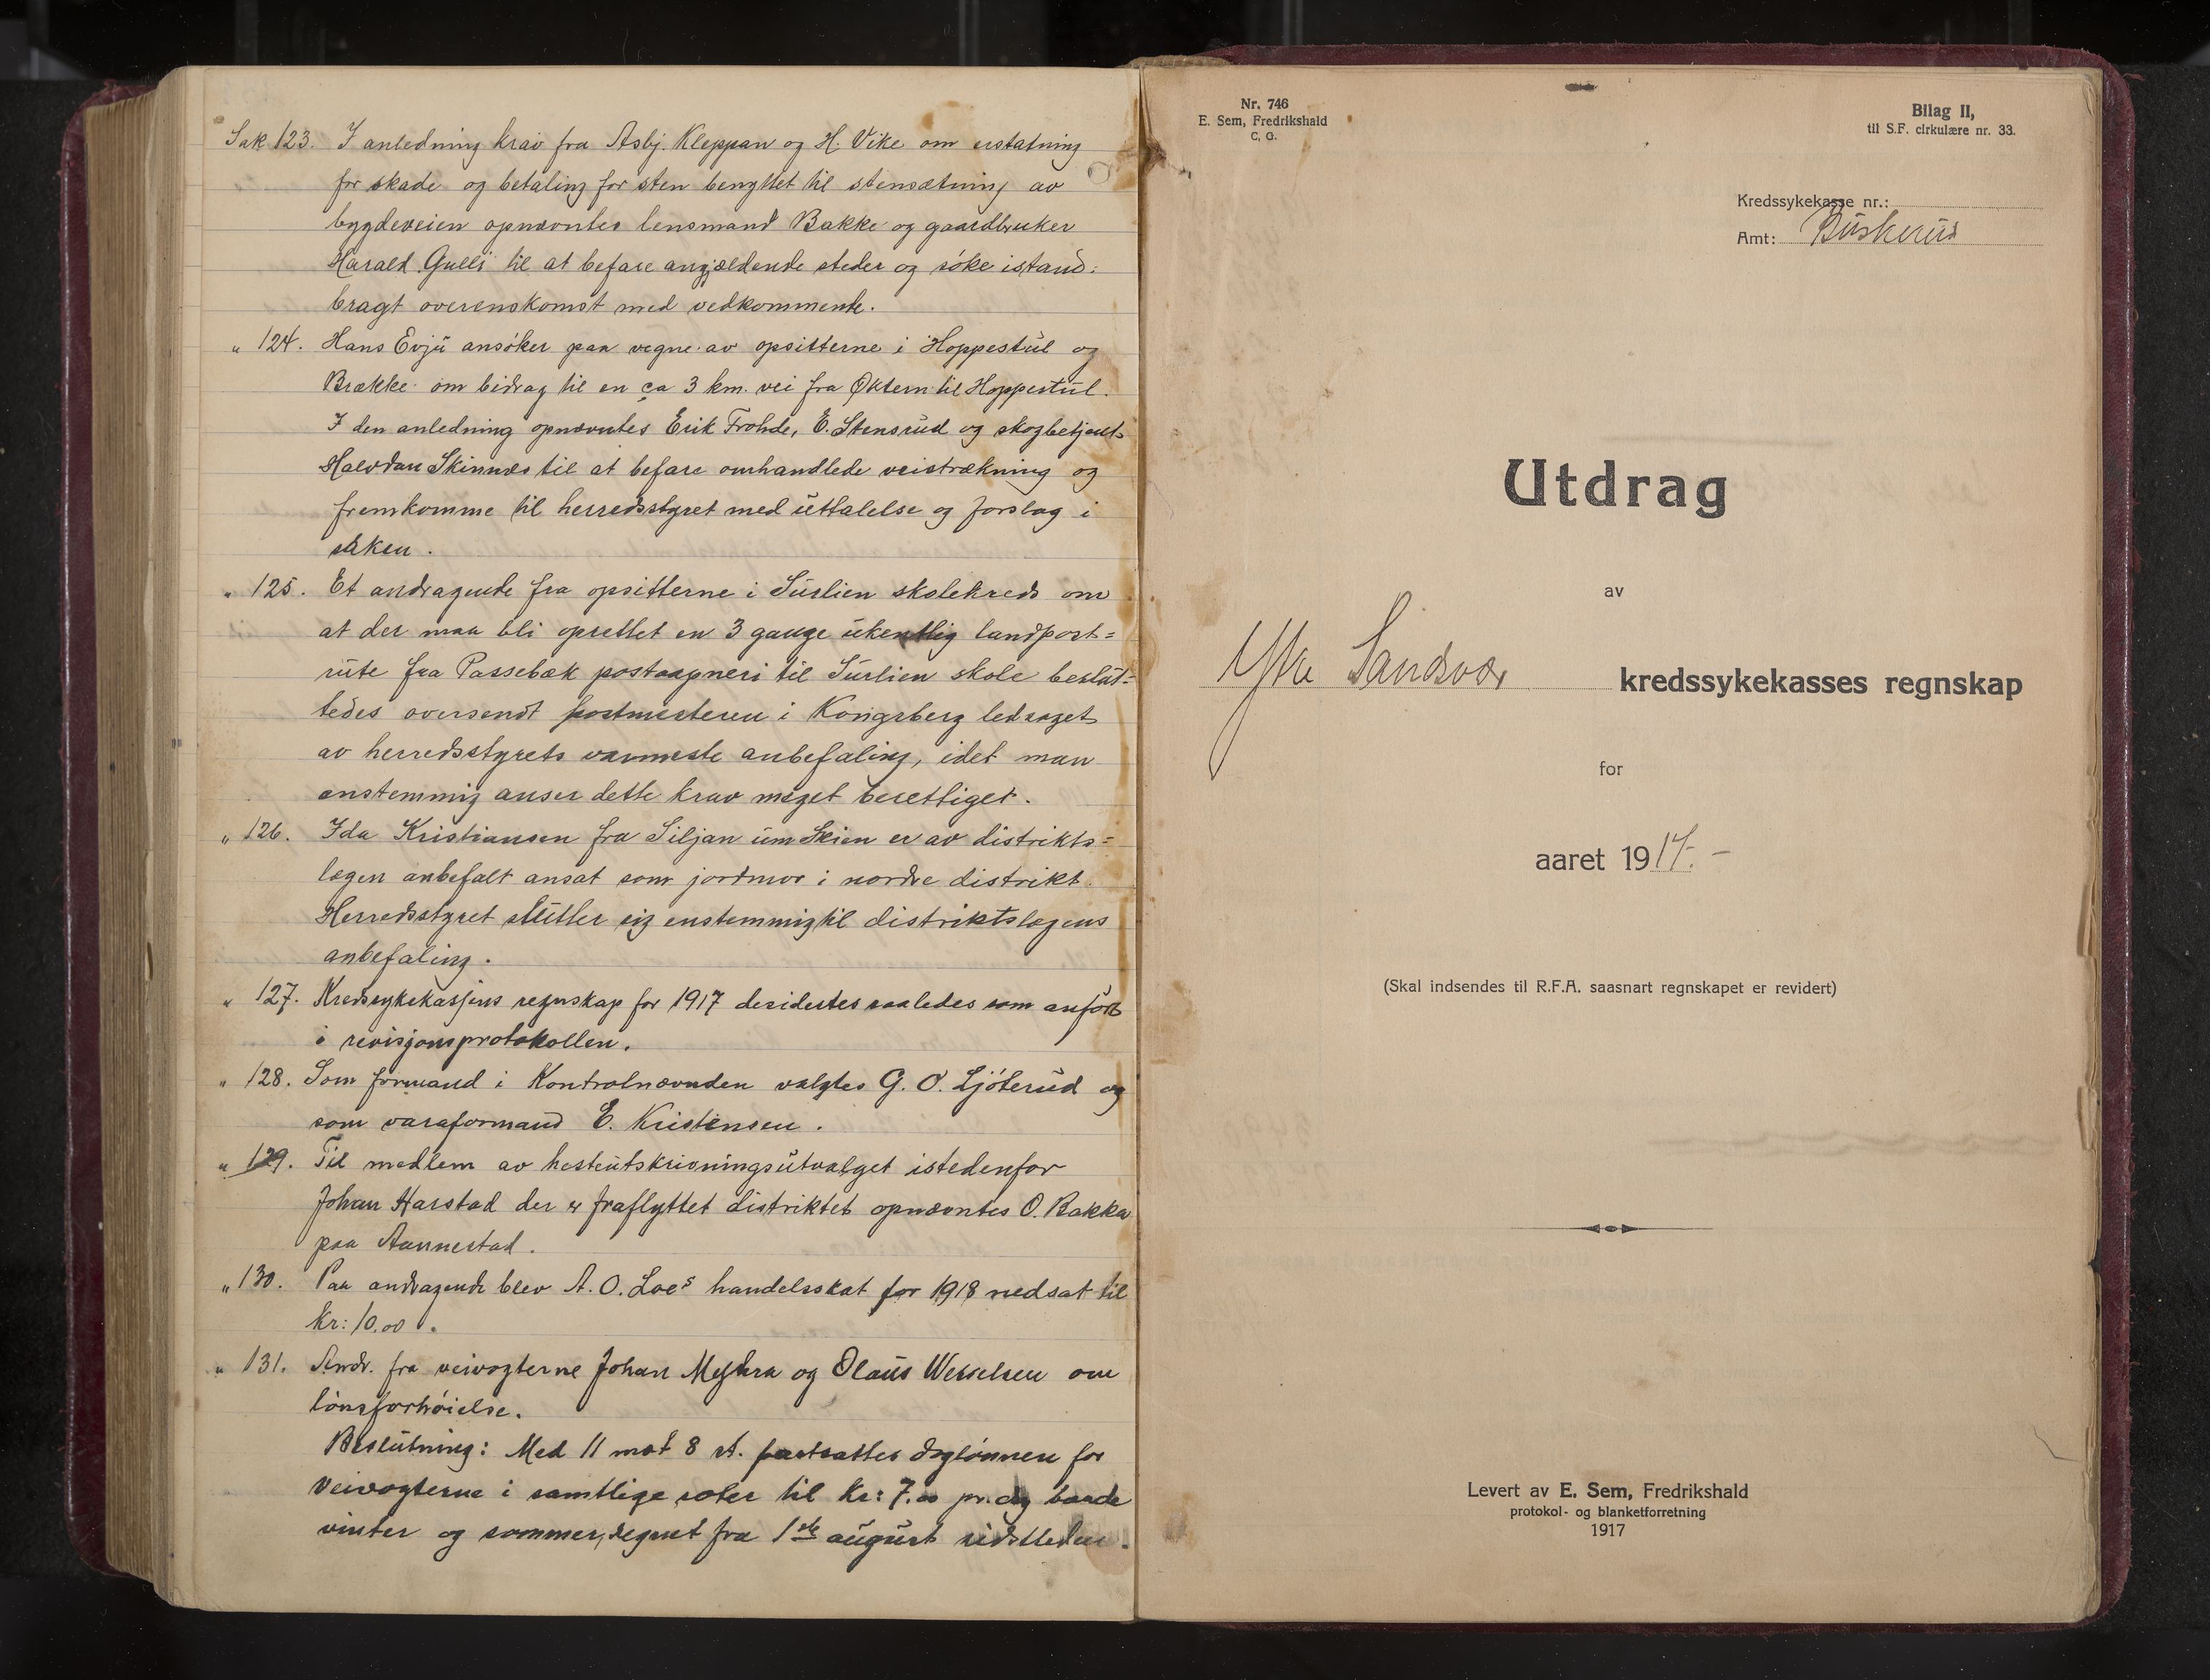 Sak 123. I anledning krav fra Asbj. Kleppan og H. Vike om erstatning
for skade og betaling for sten benyttet til stensætning av
bygdeveien opnævntes lensmand Bakke og gaardbruker
Harald Gulli til at befare angjældende steder og söke istand-
bragt overenskomst med vedkommende.
" 124. Hans Evju ansöker paa vegne av opsitterne i Hoppestul og
Brække om bidrag til en ca 3 km. vei fra Öktern til Hoppestul.
I den anledning opnævntes Erik Frohde, E. Stensrud og skogbetjent
Halvdan Skinnes til at befare omhandlede veistrækning og
fremkomme til herredsstyret med uttalelse og forslag i
saken.
" 125. Et andragende fra opsitterne i Surlien skolekreds om
at der maa bli oprettet en 3 gange ukentlig landpost=
rute fra Passebæk postaapneri til Surlien skole beslut-
tedes oversendt postmesteren i Kongsberg ledsaget
av herredsstyrets varmeste anbefaling, idet man
enstemmig anser dette krav meget berettiget.
" 126. Ida Kristiansen fra Siljan um Skien er av distrikts=
lægen anbefalt ansat som jordmor i nordre distrikt.
Herredsstyret slutter sig enstemmig til distriktslægens
anbefaling.
" 127. Kredssykekassens regnskap for 1917 desidertes saaledes som anfört
i revisjonsprotokollen.
" 128. Som formand i Kontrolnævnden valgtes G. O. Ljöterud og
som varaformand E. Kristensen.
" 129. Til medlem av hesteutskrivningsutvalget istedenfor
Johan Harstad der er fraflyttet distriktet opnævntes O. Bakka
paa Aannestad.
" 130. Paa andragende blev A. O. Loes handelsskat for 1918 nedsat til
Kr: 10.00.
" 131. Andr. fra veivogterne Johan Myhra og Olaus Wesselsen om
lönsforhöielse.
Beslutning: Med 11 mot 8 st. fastsattes daglönnen for
veivogterne i samtlige roter til Kr: 7.00 pr. dag baade
vinter og sommer, regnet fra 1ste august sidstleden.
Nr. 746
E. Sem, Fredrikshald
C. G.
Bilag II,
til S.F. cirkulære nr. 33.
Kredssykekasse nr.:
Amt: Buskerud
Utdrag
av
Ytre Sandsvær kredssykekasses regnskap
for
aaret 1917. –
(Skal indsendes til R.F.A. saasnart regnskapet er revidert)
Levert av E. Sem, Fredrikshald
protokol- og blanketforretning
1917